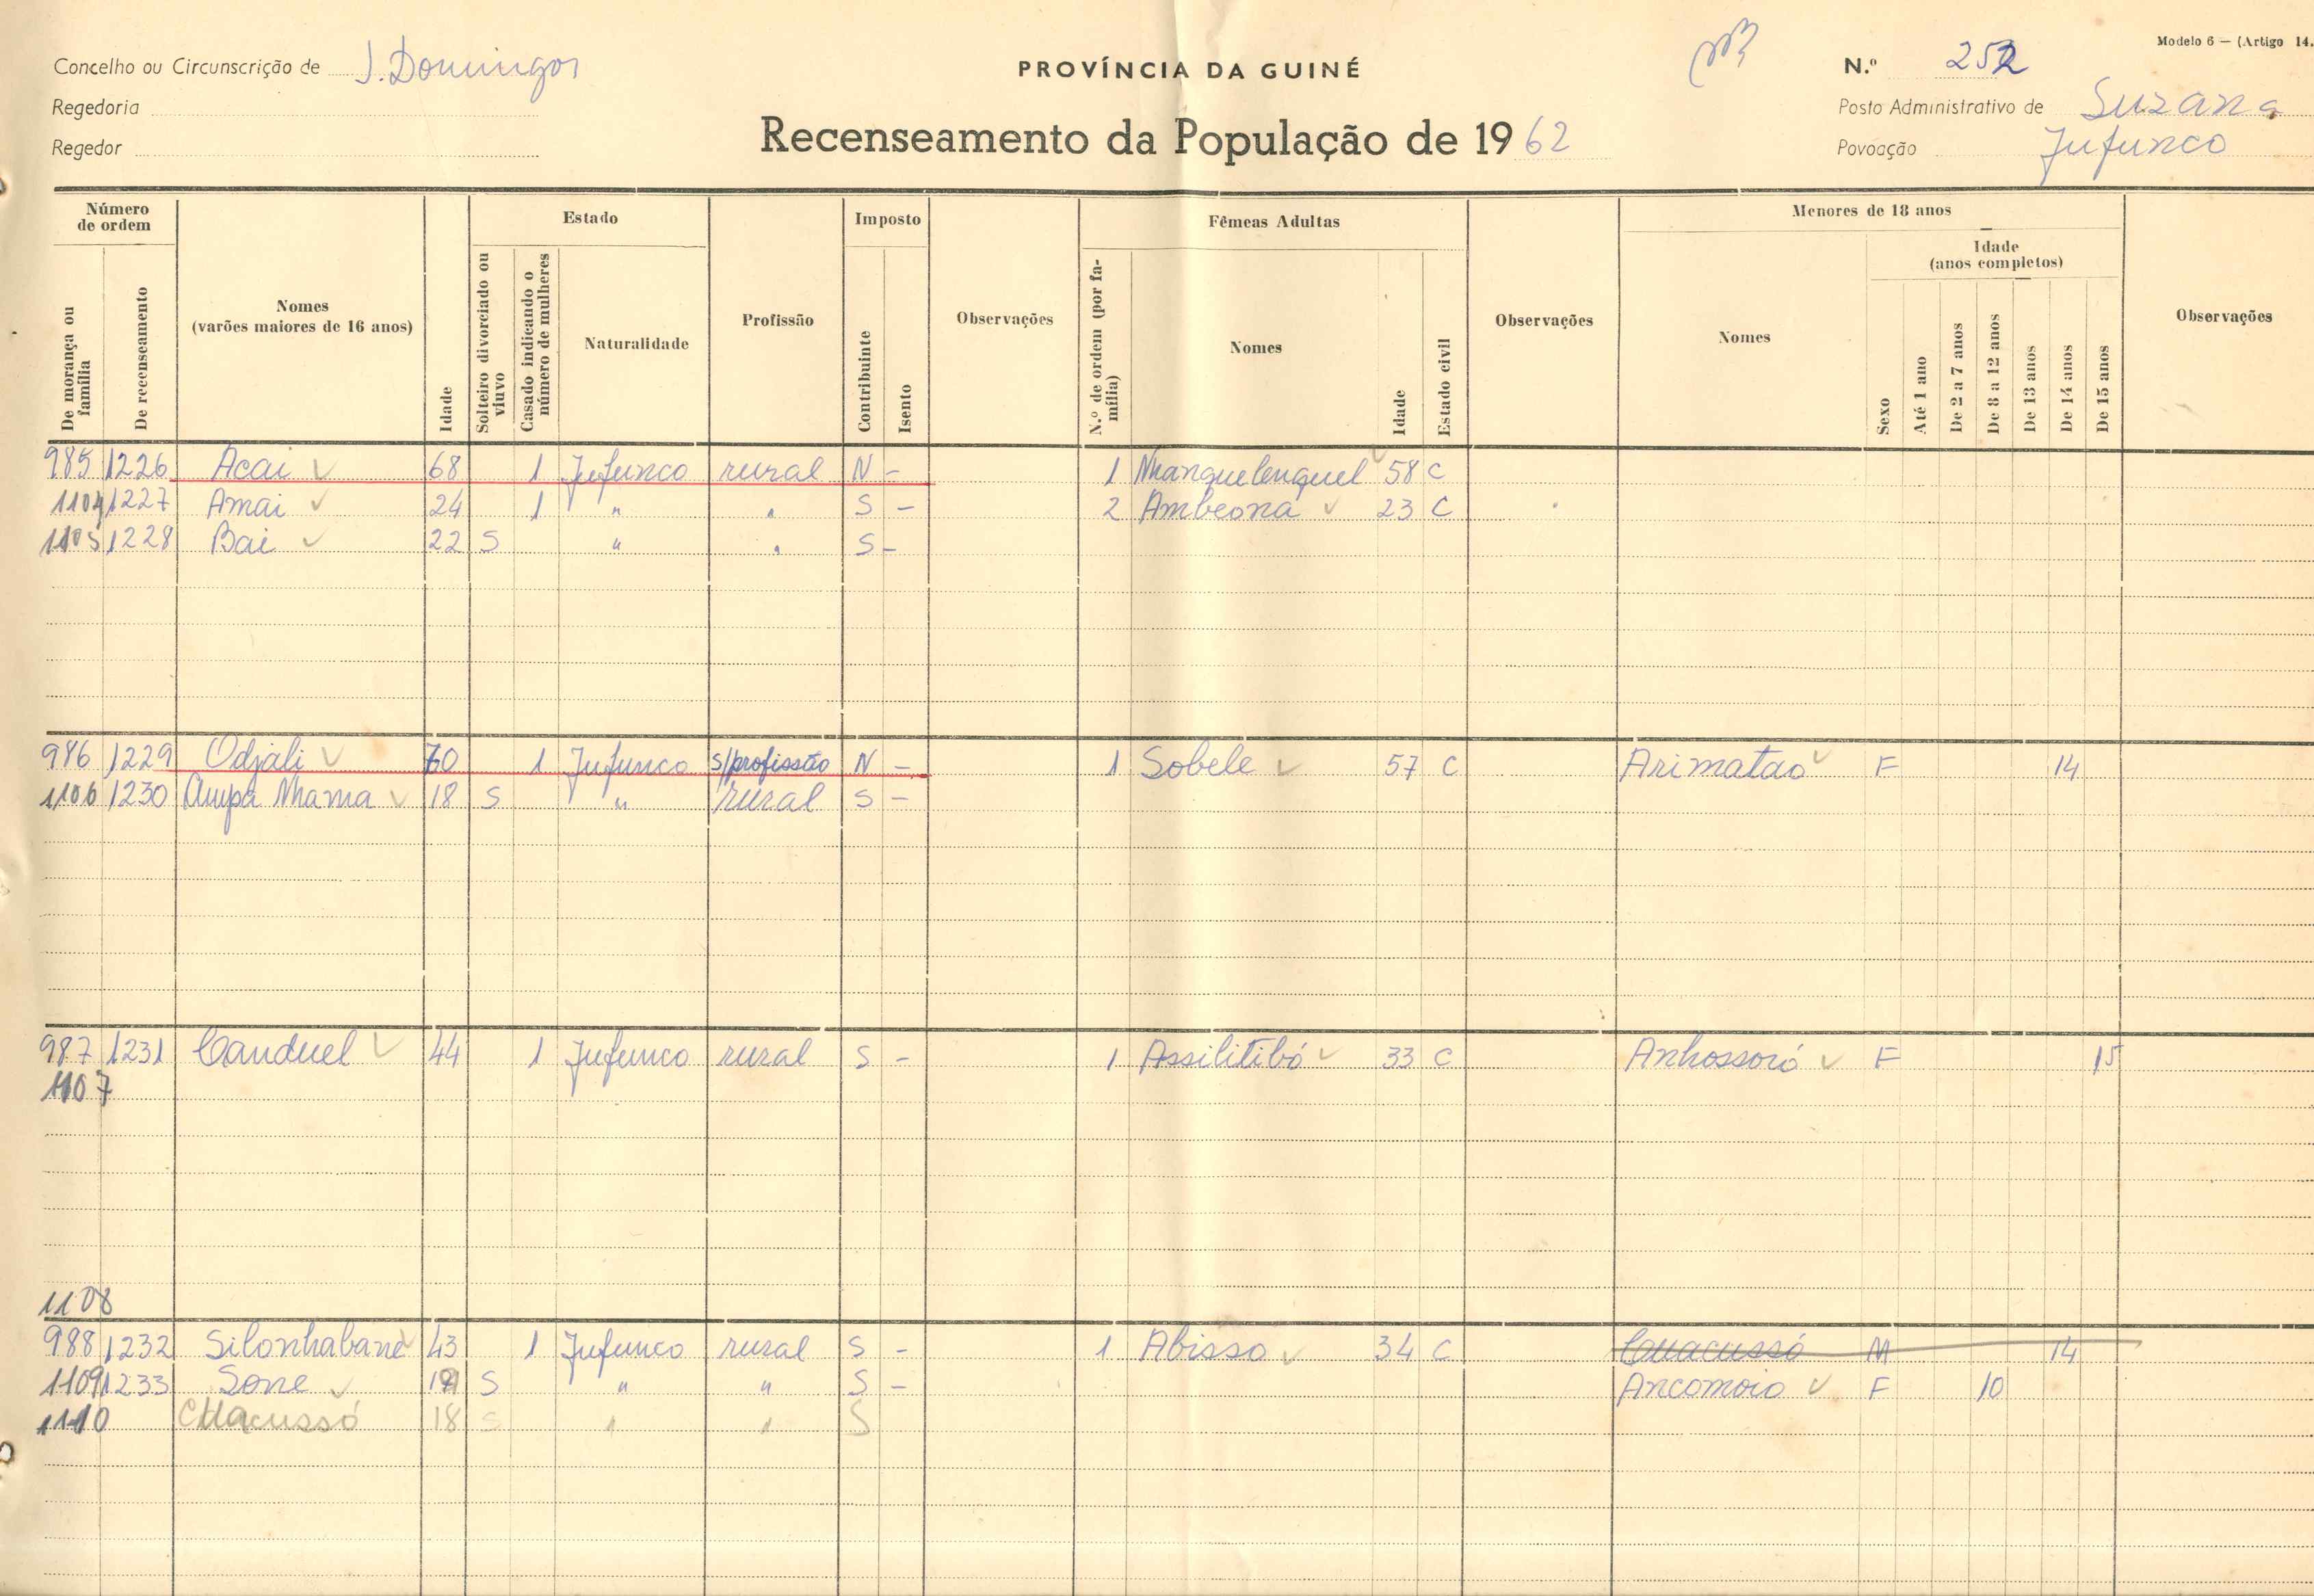 Modelo 6 — (Artigo 14.
Concelho ou Circunscrição de S. Domingos
PROVÍNCIA DA GUINÉ
N.º 252
Regedoria
Posto Administrativo de Suzana
Regedor
Recenseamento da População de 1962
Povoação Jufunco
Número de ordem
De morança ou família
De recenseamento
Nomes
(varões maiores de 16 anos)
Idade
Estado
Solteiro divorciado ou viuvo
Casado indicando o número de mulheres
Naturalidade
Profissão
Imposto
Contribuinte
Isento
Observações
Fêmeas Adultas
N.º de ordem (por família)
Nomes
Idade
Estado civil
Observações
Menores de 18 anos
Nomes
Idade
(anos completos)
Sexo
Até 1 ano
De 2 a 7 anos
De 8 a 12 anos
De 13 anos
De 14 anos
De 15 anos
Observações
985 1226 Acai 68 1 Jufunco rural N - 1 Nhanquelenquel 58 C
1104 1227 Amai 24 1 " " S - 2 Ambeona 23 C
1105 1228 Bai 22 S " " S -
986 1229 Odjali 70 1 Jufunco s/profissão N - 1 Sobele 57 C Arimatao F 14
1106 1230 Ampa Nhama 18 S " rural S -
987 1231 Canduel 44 1 Jufunco rural S - 1 Assilitibó 33 C Anhossoró F 15
1107
1108
988 1232 Silonhabane 43 1 Jufunco rural S - 1 Abisso 34 C Cuacussó M 14
1109 1233 Sone S " " S - Ancomoio F 10
1110 Cuacussó 18 S " " S